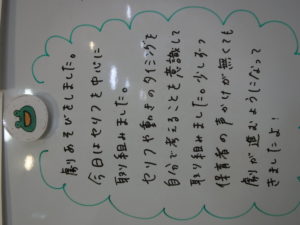 劇あそびをしました。
今日はセリフを中心に
取り組みました。
セリフや動きのタイミングを
自分で考えることを意識して
取り組みました。少しずつ
保育者の声かけが無くても
劇が進むようになって
きましたよ!